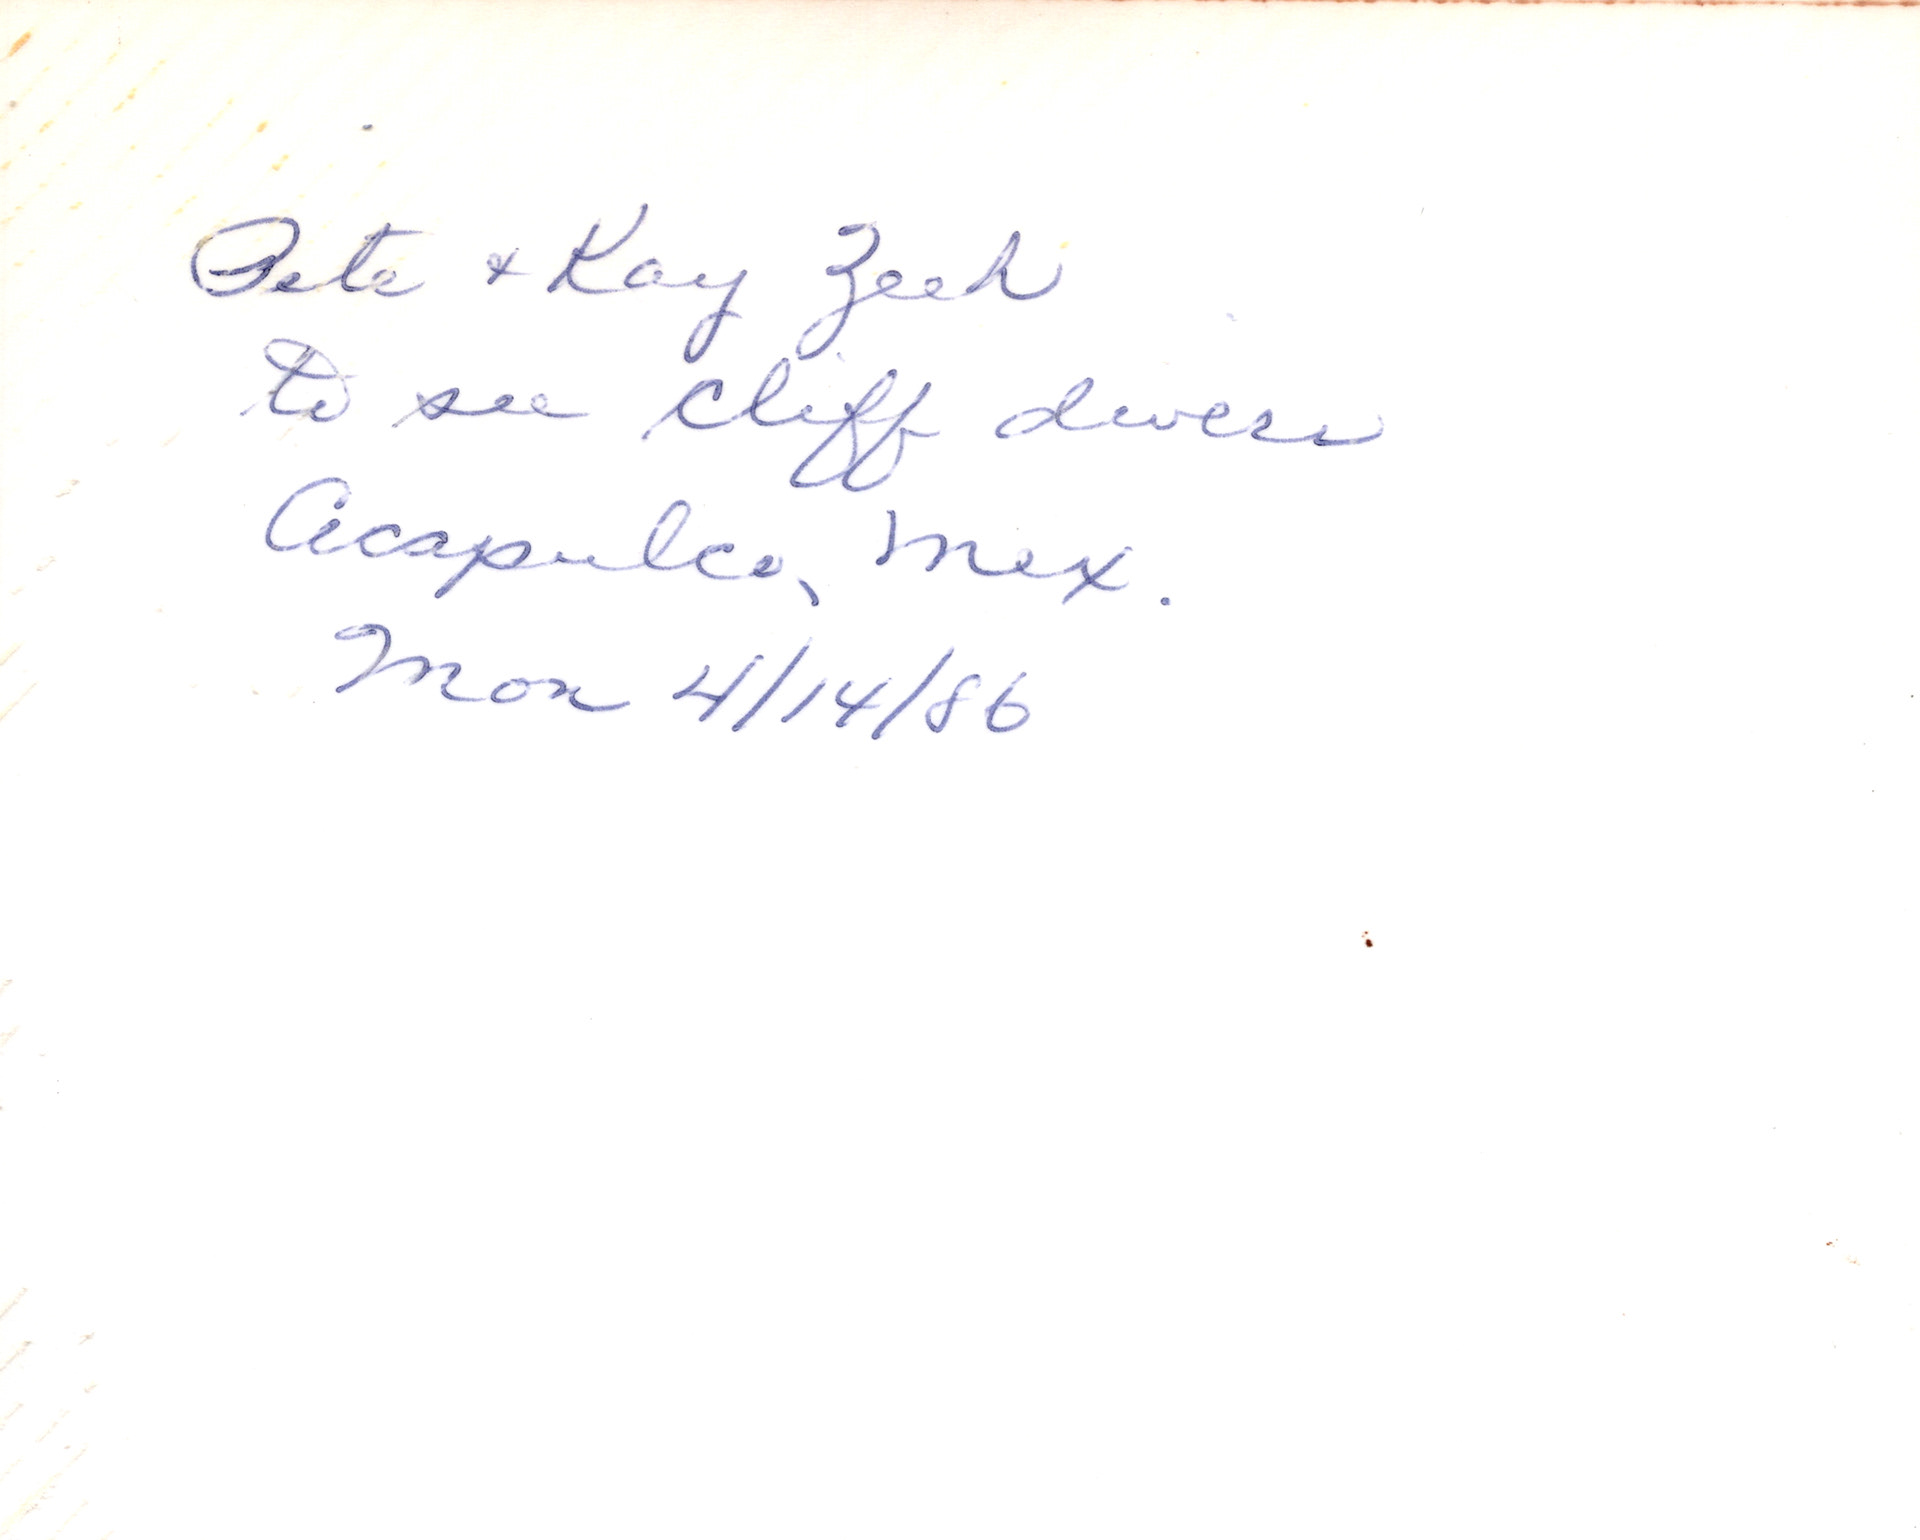 Pete + Kay Zech
to see cliff divers
Acapulco, Mex.
Mon 4/14/86